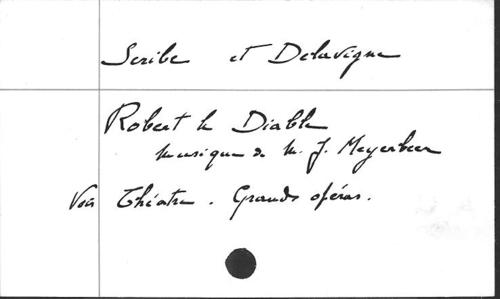 Scribe et Delavigne
Robert le Diable
musique de M. J. Meyerbeer
Voir Théatre. Grands opéras.